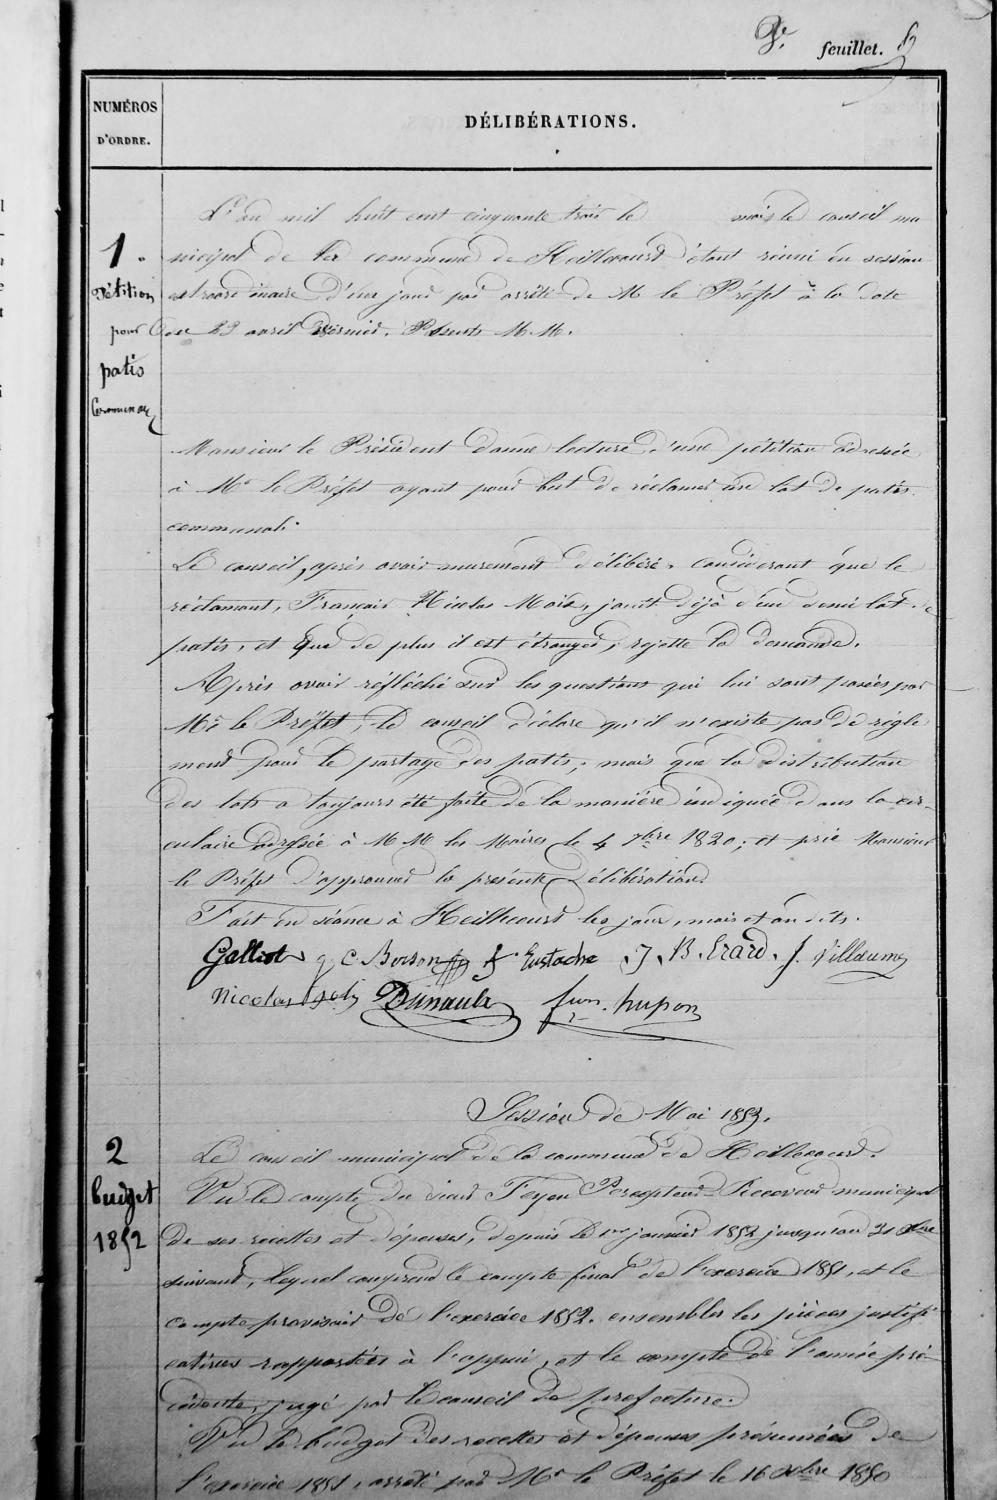 feuillet.
NUMÉROS
D'ORDRE.
DÉLIBÉRATIONS.
L'an mil huit cent cinquante trois le mois le conseil mu
nicipal de la commune de Heillecourt s'étant réuni en session
extraordinaire d'un jour par arrêté de M le Préfet à la date
du 29 avril dernier. Présents M.M.
1.
Pétition
pour
patis
Communaux
Monsieur le Président donne lecture d'une pétition adressée
à Mr le Préfet ayant pour but de réclamer un lot de patis
communal.
Le conseil, après avoir murement délibéré, considérant que le
réclamant, Français Nicolas jouit déjà d'un demi lot de
patis, et que de plus il est étranger, rejette la demande.
Après avoir réfléchi sur les questions qui lui sont posées par
Mr le Préfet, le conseil déclare qu'il n'existe pas de règle
ment pour le partage des patis, mais que la distribution
des lots a toujours été faite de la manière indiquée dans la cir-
culaire adressée à MM les Maires le 4 7bre 1820; et prie Monsieur
le Préfet d'approuver la présente délibération.
Fait en séance à Heillecourt les jour, mois et an dits.
Galliot C. Boison Eustache J. B. Erard. J. Villaume
Nicolas Dunaula hupon
Session de Mai 1853.
2
budget
1852
Le conseil municipal de la commune de Heillecourt.
Vu le compte du sieur Feyen Percepteur Receveur municipal
de ses recettes et dépenses, depuis le 1er janvier 1852 jusqu'au 31 Xbre
suivant, lequel comprend le compte final de l'exercice 1851, et le
compte provisoire de l'exercice 1852. ensembles les pièces justifi
catives rapportées à l'appui, et le compte de l'année pré
cédente, jugé par le conseil de préfecture.
Vu le budget des recettes et dépenses présumées de
l'exercice 1851, arrêté par Mr le Préfet le 16 Xbre 1850